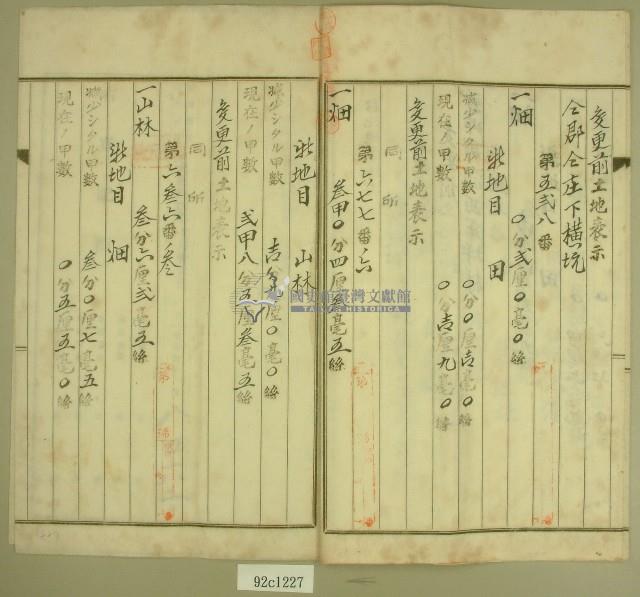 変更前土地表示
仝郡仝庄下横坑
第五弐八番
一畑 〇分弐厘〇毫〇絲
新地目 田
減少シタル甲数 〇分〇厘壱毫〇絲
現在ノ甲数 〇分壱厘九毫〇絲
変更前土地表示
同所
第六七七番ノ六
一畑 参甲〇分四厘参毫五絲
新地目 山林
減少シタル甲数 壱分九厘〇毫〇絲
現在ノ甲数 弐甲八分五厘参毫五絲
変更前土地表示
同所
第六参六番ノ参
一山林 参分六厘弐毫五絲
新地目 畑
減少シタル甲数 参分〇厘七毫五絲
現在ノ甲数 〇分五厘五毫〇絲
國史館臺灣文獻館
TAIWAN HISTORICA
92c1227